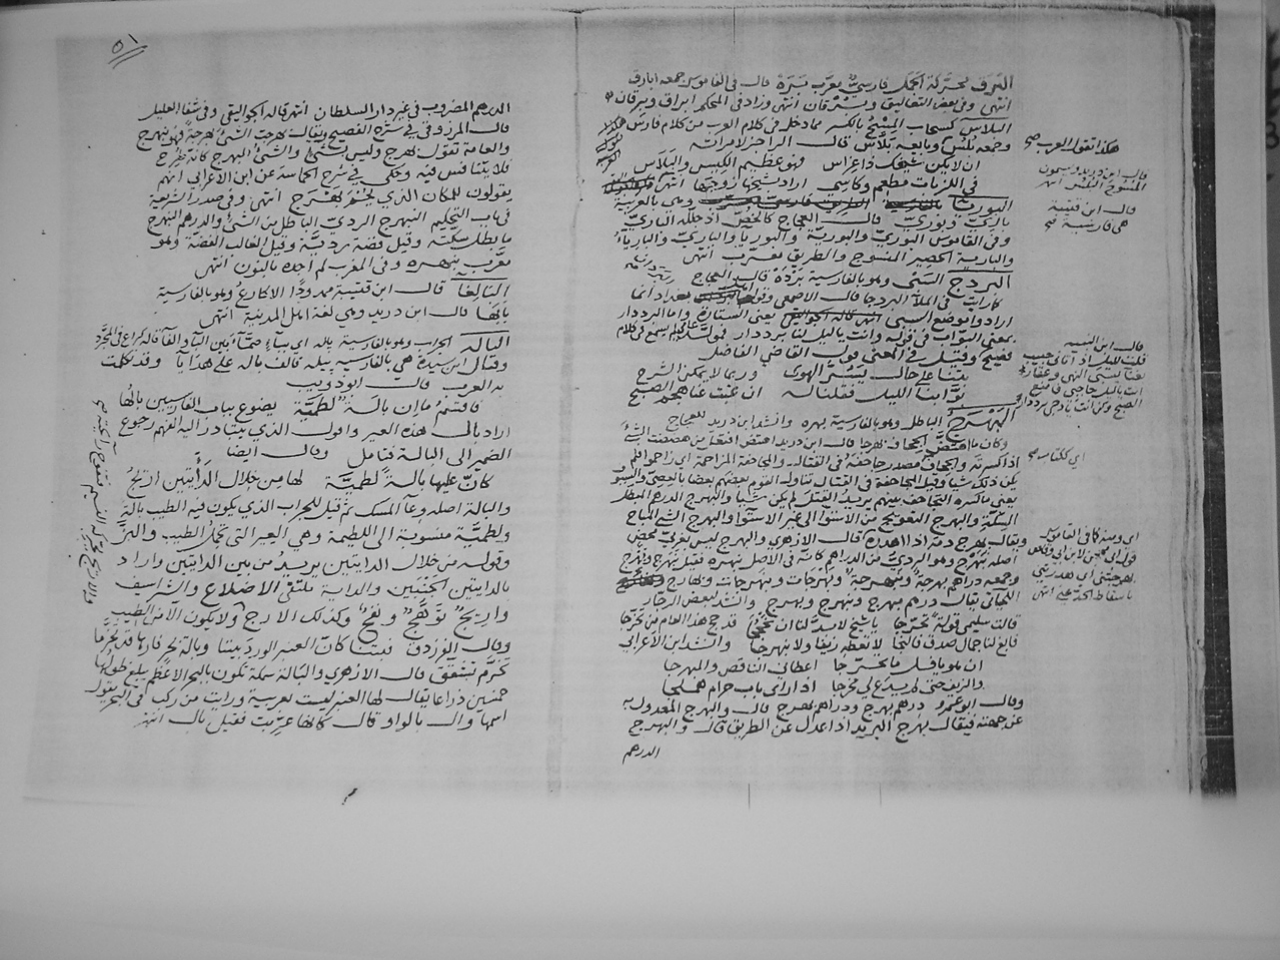 البَرَق محرّكة الحَمَل فارسىّ معرّب بَرَهْ قال فى القاموس جمعه ابارق
انتهى وفى بعض التعاليق وبِرْقان انتهى وزاد فى المحكم ابراق وبرقان
البلاسَ كسحاب المِسْحُ بالكسر مما دخل فى كلام العرب من كلام فارس
وجمعه بُلُسٌ وبايعه بلّاس قال الراجز لامراته
ان لا يكن شيخك ذا غراس فهو عظيم الكيس والبلاس
فى اللزبات مطعم وكاسى اراد شيخها زوجها انتهى
البوريا بالفارسية وهى بالعربية
بارىّ وبورىّ قال العجاج كالخصّ اذ جلله البارىّ
وفى القاموس البورىّ والبوريّة والبورياء والبارىّ والبارياء
والبارية الحصير المنسوج والطريق معرّب انتهى
البردج السَبى وهو بالفارسية بَرْدَهْ قال العجاج
كما رأيت فى الملاء البردجا قال الاصمعى وقوله
اراد وابوضع السبى يعنى الستارة واما البرددار
بمعنى البوّاب فى قوله وانت يا ليل لنا برددار فمولّد عامّى لم يسمع فى كلام
فصيح وقيل فى المعنى قول القاضى الفاضل
بتنا على حال يَسُرّ الهوى وربما لا يمكن الشرح
بوّابنا الليل فقلنا له ان غبت عنا هجم الصبح
البَهْرَج الباطل وهو بالفارسية نبهره وانشد ابن دريد للعجاج
وكان ما اهتضّ الجحاف بهرجا قال ابن دريد اهتض افتعل من هضضت الشئ
اذا كسرته والجحاف مصدر جاحفه فى القتال والمجاحفة المزاحمة اى زاحمونا فلم
يكن ذلك شيا وقيل المجاحفة فى القتال تناول القوم بعضهم بعضا بالعصى والسيوف
يعنى ما كسره التجاحف بينهم يريد القتل لم يكن شيا والبهرج الدرهم المبطل
السِكّة والبهرج التعويج من الاستوا الى غير الاستوا والبهرج الشئ المباح
ويقال بهرج دمه اذا اهدره قال الازهرى والبهرج ليس بعربىّ محض
اصله نَبَهْرَج وهو الردئ من الدراهم كانه فى الاصل نبهره فقيل نبهرج وبهرج
وجمعه دراهم بهرجة ونبهرجة وبهرجات ونبهرجات وبهارج
اللحيانى يقال درهم مبهرج ونبهرج وبهرج وانشد لبعض الرجّاز
قالت سليمى قولة تحرّجا يا شيخ لا بدّ لنا ان نحججا قد حج هذا العام من تحرّجا
فابغ لنا جمال صدق فالنجا لا تعطه زيفا ولا نبهرجا وانشد ابن الاعرابى
ان هو يا فل ما تحرّجا اعطانى الناقص والنبهرجا
والزيف حتى لم يدع لى مخرجا اذا رأى باب حرام هملجا
وقال ابو عمرو درهم بهرج ودراهم بهرج قال والبهرج المعدول به
عن جهته فيقال بهرج البريد اذا عدل عن الطريق قال والبهرج
الدرهم
هكذا تقول العرب صح
قال ابن دريد ويسمون
المنسوج البلس انتهى
قال ابن قتيبة
هى فارسية صح
قال ابن النبيه
قلت لليل اذ أتانى حبيب
وغنا يسبى النهى وعقار
انت يا ليل حاجبى فامنع
الصبح وكن انت يا دجى برددار
اى كالكناسة صح
اى ومنه كما فى القاموس
قول ابى محجن لابن ابى وقاص
بهرجتنى اى هدرتنى
باسقاط الحدّ عنى انتهى
٥١
الدرهم المضروب فى غير دار السلطان انتهى قاله الجواليقى وفى شفا العليل
قال المرزوقى فى شرح الفصيح ويقال بهرجت الشئ بهرجةً فهو مبهرج
والعامة تقول نبهرج وليس بشئ والشئ المبهرج كانه طرح
فلا يتنافس فيه وحكى فى شرح الحماسة عن ابن الاعرابى انهم
يقولون للمكان الذى لم يُحْمَ بَهْرَج انتهى وفى صدر الشريعة
فى باب التحكيم النبهرج الردئ الباطل من الشئ والدرهم النبهرج
ما بطل سكته وقيل فضة رديّة وقيل الغالب الفضة وهو
معرّب نبهره وفى المغرب لم اجده بالنون انتهى
البالغا قال ابن قتيبة ممدودًا الاكارعُ وهو بالفارسية
بايها قال ابن دريد وهى لغة اهل المدينة انتهى
البالة الجراب وهو بالفارسية باله اى بباء ممالة بين الباء والفاء قاله كراع فى المجرّد
وقال ابن سيده هى بالفارسيه پيله فالف باله على هذا يا وقد تكلمت
به العرب قال ابو ذويب
فاقسم ما إن بالةٌ لطميّة يضوع بباب الفارسيين بالها
اراد بالى هذه العير واقول الذى يتبادر اليه الفهم رجوع
الضمير الى البالة فتامل وقال ايضا
كانّ عليها بالةً لطميّةً لها من خلال الدأيتين اريجُ
والبالة اصله وعآ المسك ثم قيل للجراب الذى يكون فيه الطيب بالة
ولطميّة منسوبة الى اللطيمة وهى العير التى تحمل الطيب والبزّ
وقوله من خلال الدايتين يريد من بين الدايتين واراد
بالدايتين الجنبين والداية ملتقى الاضلاع والشراسيف
واريج توهّج ونفح وكذلك الارج ولا يكون الّا من الطيب
وقال الفرزدق فبتنا كأن العنبر الورد بيننا وبالة تجر فارها قد تخرّما
تخرّم تشقّق قال الازهرى والبالة سمكة تكون بالبحر الاعظم يبلغ طولها
خمسين ذراعا يقال لها العنبر ليست بعربية ورايت من ركب فى البحر يقول
اسمها وال بالواو قال كأنها عرّبت فقيل بال انتهى